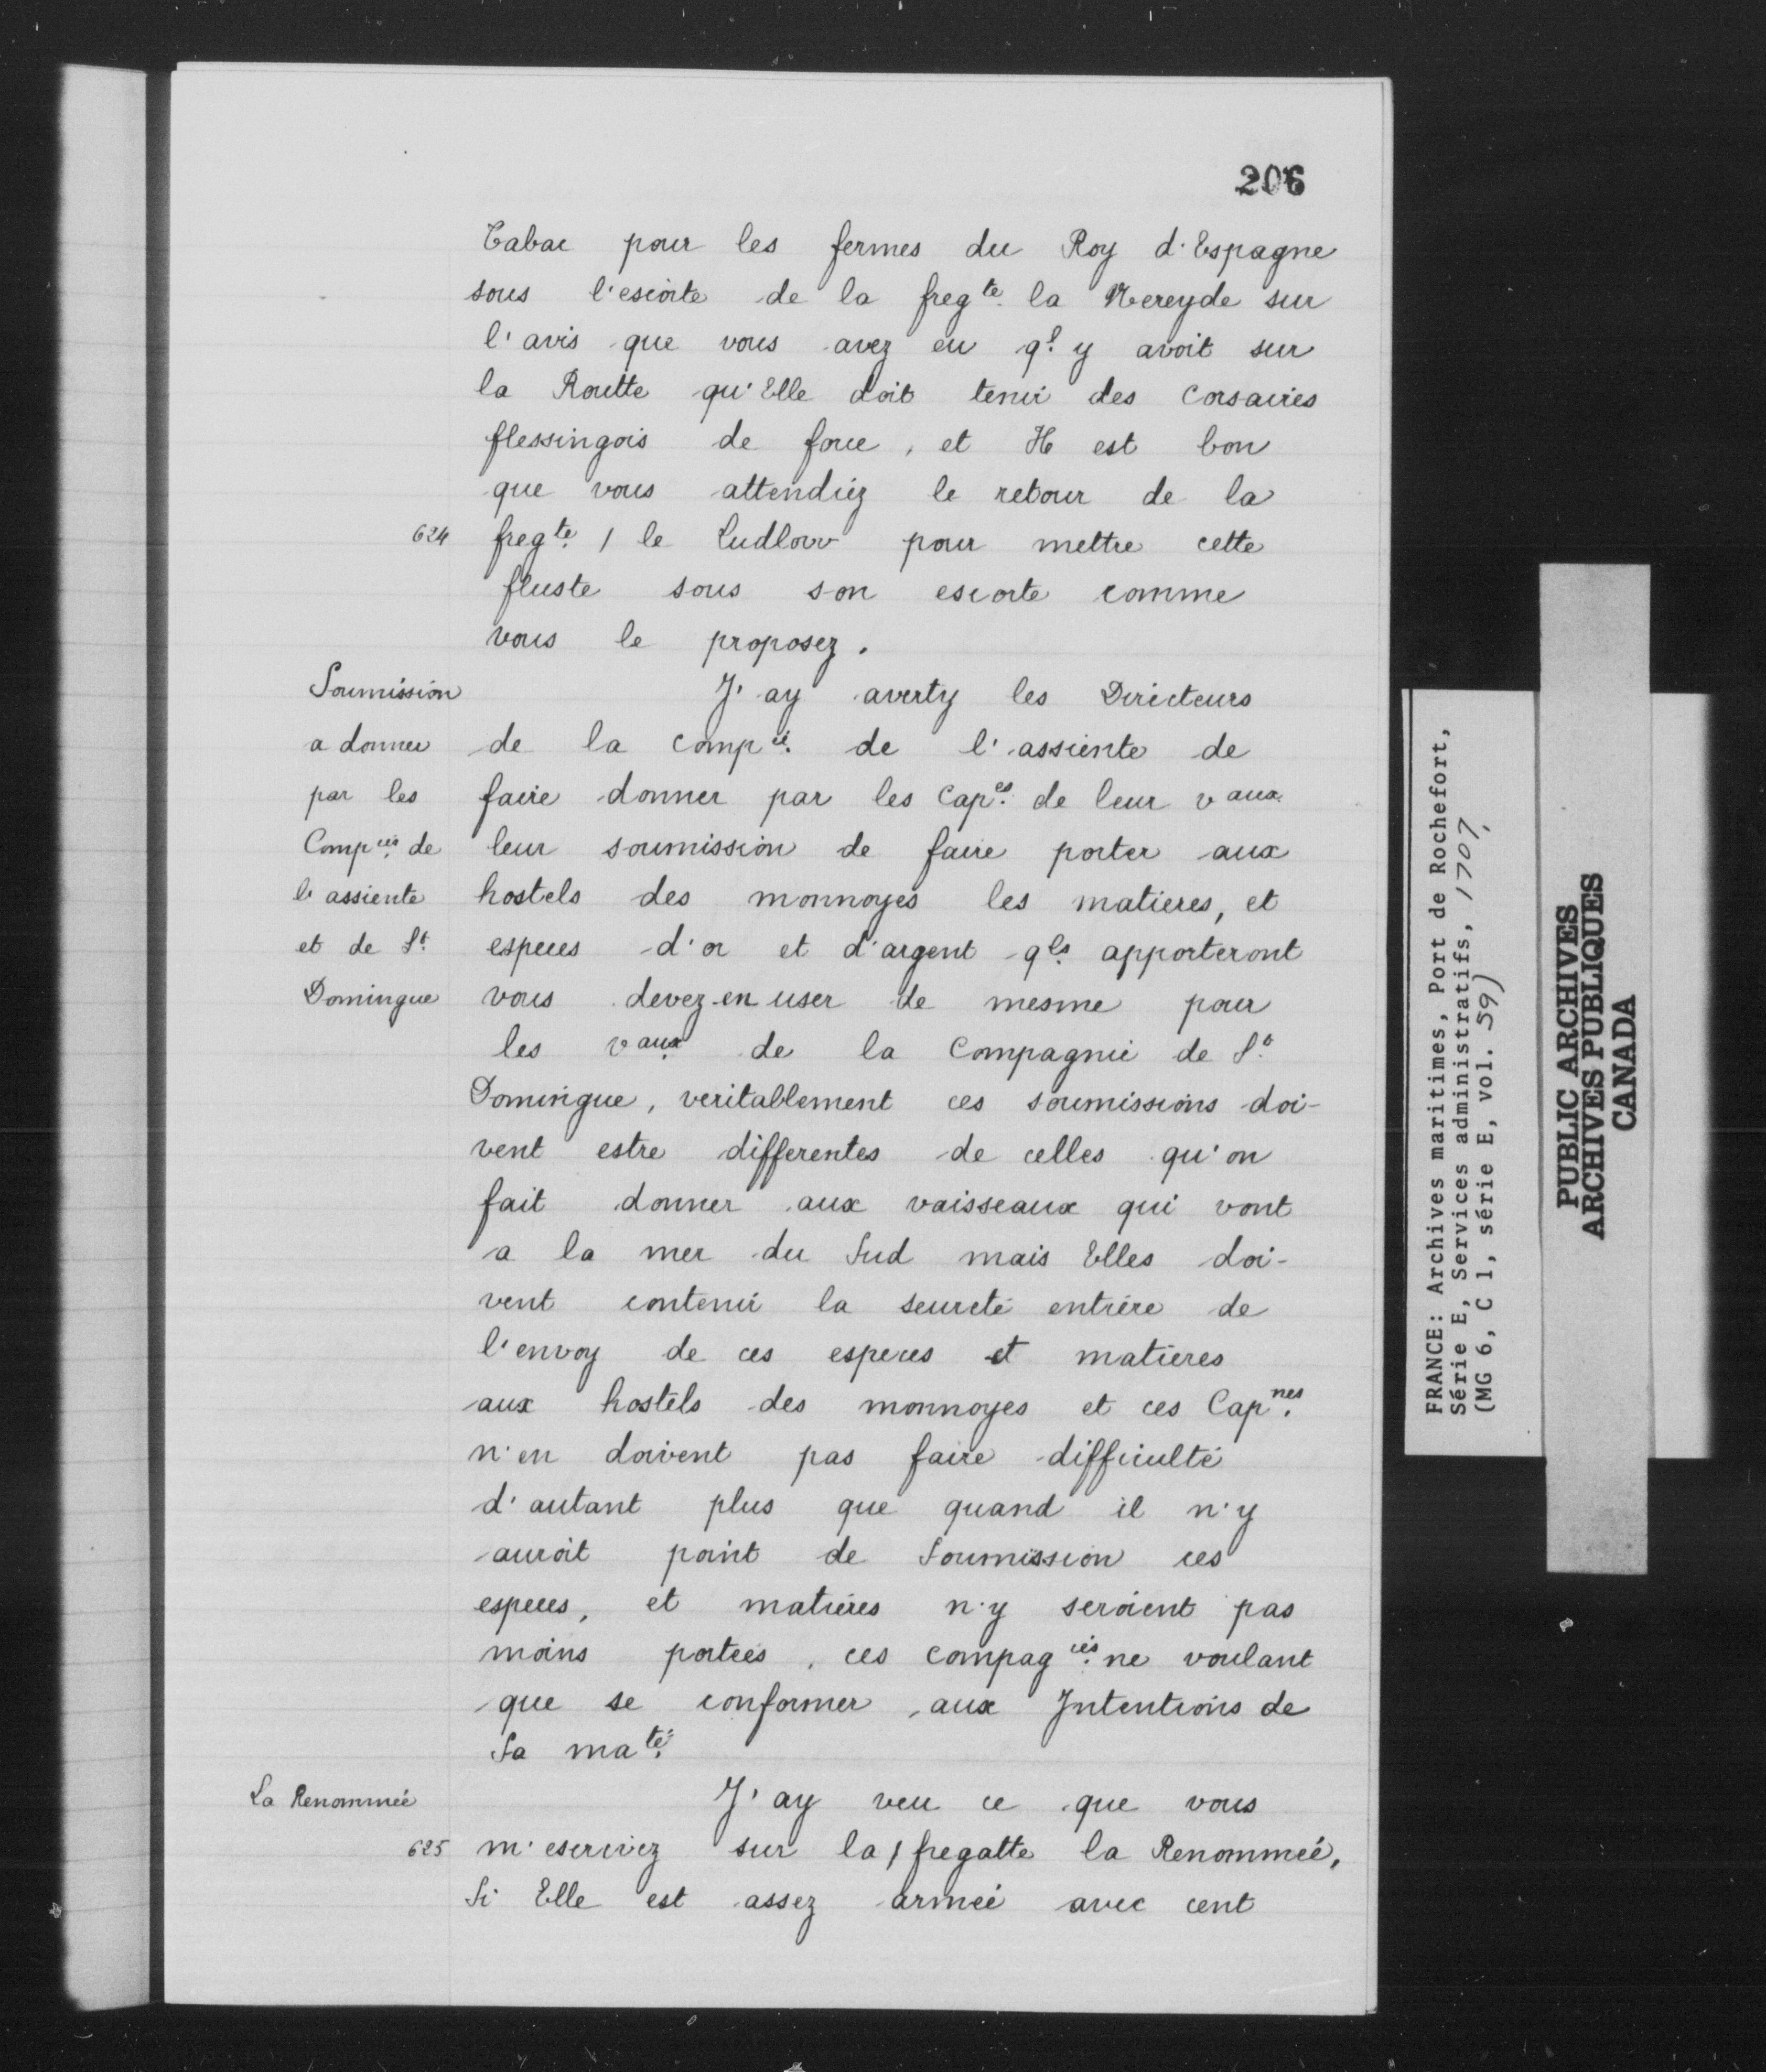 206
Tabac pour les fermes du Roy d'Espagne
sous l'escorte de la freg.te la Nereyde sur
l'avis que vous avez eu q.l y avoit sur
la Routte qu'Elle doit tenir des corsaires
flessingois de force, et Il est bon
que vous attendiez le retour de la
624 freg.te / le Ludlow pour mettre cette
fluste sous son escorte comme
vous le proposez.
Soumission
a donner
par les
Comp.ies de
l'assiente
et de S.t
Domingue
J'ay averty les Directeurs
de la comp.ie de l'assiente de
faire donner par les Cap.es de leur vaux
leur soumission de faire porter aux
hostels des monnoyes les matieres, et
especes d'or et d'argent q.ls apporteront
vous devez en user de mesme pour
les vaux de la Compagnie de S.t
Domingue, veritablement ces soumissions doi-
vent estre differentes de celles qu'on
fait donner aux vaisseaux qui vont
a la mer du Sud mais Elles doi-
vent contenir la seureté entiere de
l'envoy de ces especes et matieres
aux hostels des monnoyes et ces Cap.nes
n'en doivent pas faire difficulté
d'autant plus que quand il n'y
auroit point de Soumission ces
especes, et matieres n'y seroient pas
moins portées, ces compag.ies ne voulant
que se conformer aux Intentions de
Sa ma.té
La Renommée
J'ay veu ce que vous
625 m'escrivez sur la / fregatte la Renommée,
Si Elle est assez armée avec cent
FRANCE: Archives maritimes, Port de Rochefort,
Série E, Services administratifs, 1707,
(MG 6, C 1, série E, vol. 59)
PUBLIC ARCHIVES
ARCHIVES PUBLIQUES
CANADA